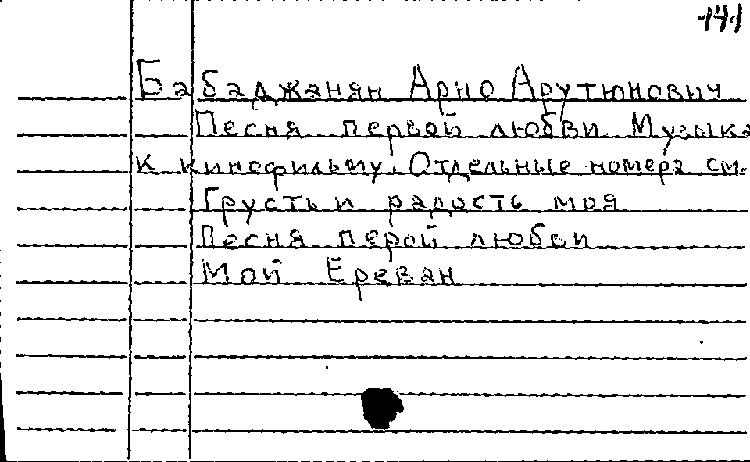 141
Бабаджанян Арно Арутюнович
Песня первой любви. Музыка
к кинофильму. Отдельные номера см.
Грусть и радость моя
Песня перой любви
Мой Ереван